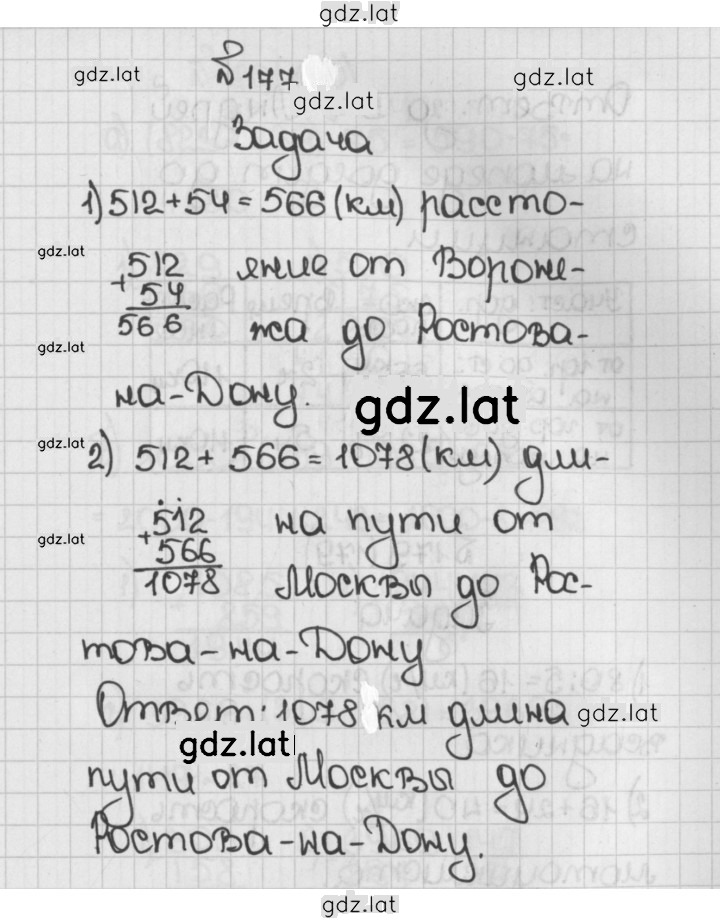 gdz.lat
№177
gdz.lat gdz.lat
gdz.lat
Задача
1) 512+54=566(км) рассто-
gdz.lat
+512 яние от Вороне-
54
566 жа до Ростова-
gdz.lat
на-Дону.
gdz.lat
gdz.lat
2) 512+566=1078(км) дли-
+512 на пути от
gdz.lat
566
1078 Москвы до Рос-
това-на-Дону
Ответ: 1078 км длина
gdz.lat
gdz.lat
пути от Москвы до
Ростова-на-Дону.
gdz.lat